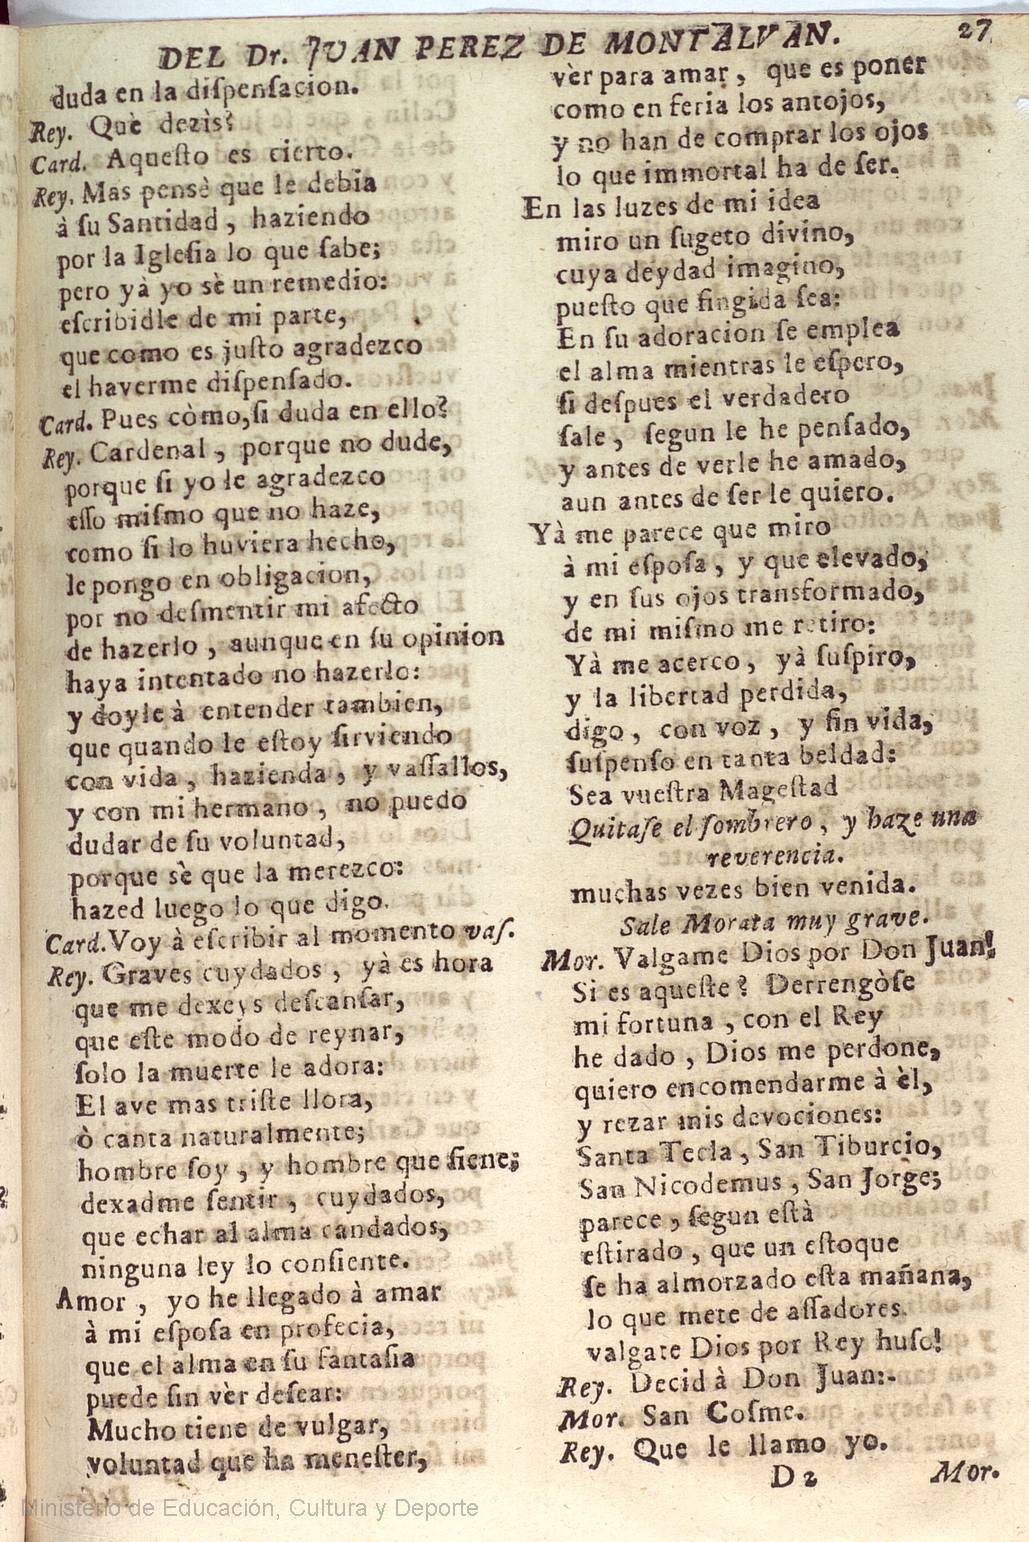 DEL Dr. JUAN PEREZ DE MONTALVAN. 27
duda en la diſpenſacion.
Rey. Què dezìs?
Card. Aqueſto es cierto.
Rey. Mas pensè que le debia
à ſu Santidad, haziendo
por la Igleſia lo que ſabe;
pero yà yo sè un remedio:
eſcribidle de mi parte,
que como es juſto agradezco
el haverme diſpenſado.
Card. Pues còmo, ſi duda en ello?
Rey. Cardenal, porque no dude,
porque ſi yo le agradezco
eſſo miſmo que no haze,
como ſi lo huviera hecho,
le pongo en obligacion,
por no deſmentir mi afecto
de hazerlo, aunque en ſu opinion
haya intentado no hazerlo:
y doyle à entender tambien,
que quando le eſtoy ſirviendo
con vida, hazienda, y vaſſallos,
y con mi hermano, no puedo
dudar de ſu voluntad,
porque sè que la merezco:
hazed luego lo que digo.
Card. Voy à eſcribir al momento vaſ.
Rey. Graves cuydados, yà es hora
que me dexeys deſcanſar,
que eſte modo de reynar,
ſolo la muerte le adora:
El ave mas triſte llora,
ò canta naturalmente;
hombre ſoy, y hombre que ſiene;
dexadme ſentir, cuydados,
que echar al alma candados,
ninguna ley lo conſiente.
Amor, yo he llegado à amar
à mi eſpoſa en profecia,
que el alma en ſu fantaſia
puede ſin vèr deſear:
Mucho tiene de vulgar,
voluntad que ha meneſter,
vèr para amar, que es poner
como en feria los antojos,
y no han de comprar los ojos
lo que immortal ha de ſer.
En las luzes de mi idea
miro un ſugeto divino,
cuya deydad imagino,
pueſto que fingida ſea:
En ſu adoracion ſe emplea
el alma mientras le eſpero,
ſi deſpues el verdadero
ſale, ſegun le he penſado,
y antes de verle he amado,
aun antes de ſer le quiero.
Yà me parece que miro
à mi eſpoſa, y que elevado,
y en ſus ojos transformado,
de mi miſmo me retiro:
Yà me acerco, yà ſuſpiro,
y la libertad perdida,
digo, con voz, y ſin vida,
ſuſpenſo en tanta beldad:
Sea vueſtra Mageſtad
Quitaſe el ſombrero, y haze una
reverencia.
muchas vezes bien venida.
Sale Morata muy grave.
Mor. Valgame Dios por Don Juan!
Si es aqueſte? Derrengòſe
mi fortuna, con el Rey
he dado, Dios me perdone,
quiero encomendarme à èl,
y rezar mis devociones:
Santa Tecla, San Tiburcio,
San Nicodemus, San Jorge;
parece, ſegun eſtà
eſtirado, que un eſtoque
ſe ha almorzado eſta mañana,
lo que mete de aſſadores.
valgate Dios por Rey huſo!
Rey. Decid à Don Juan:-
Mor. San Coſme.
Rey. Que le llamo yo.
D 2 Mor.
Ministerio de Educación, Cultura y Deporte